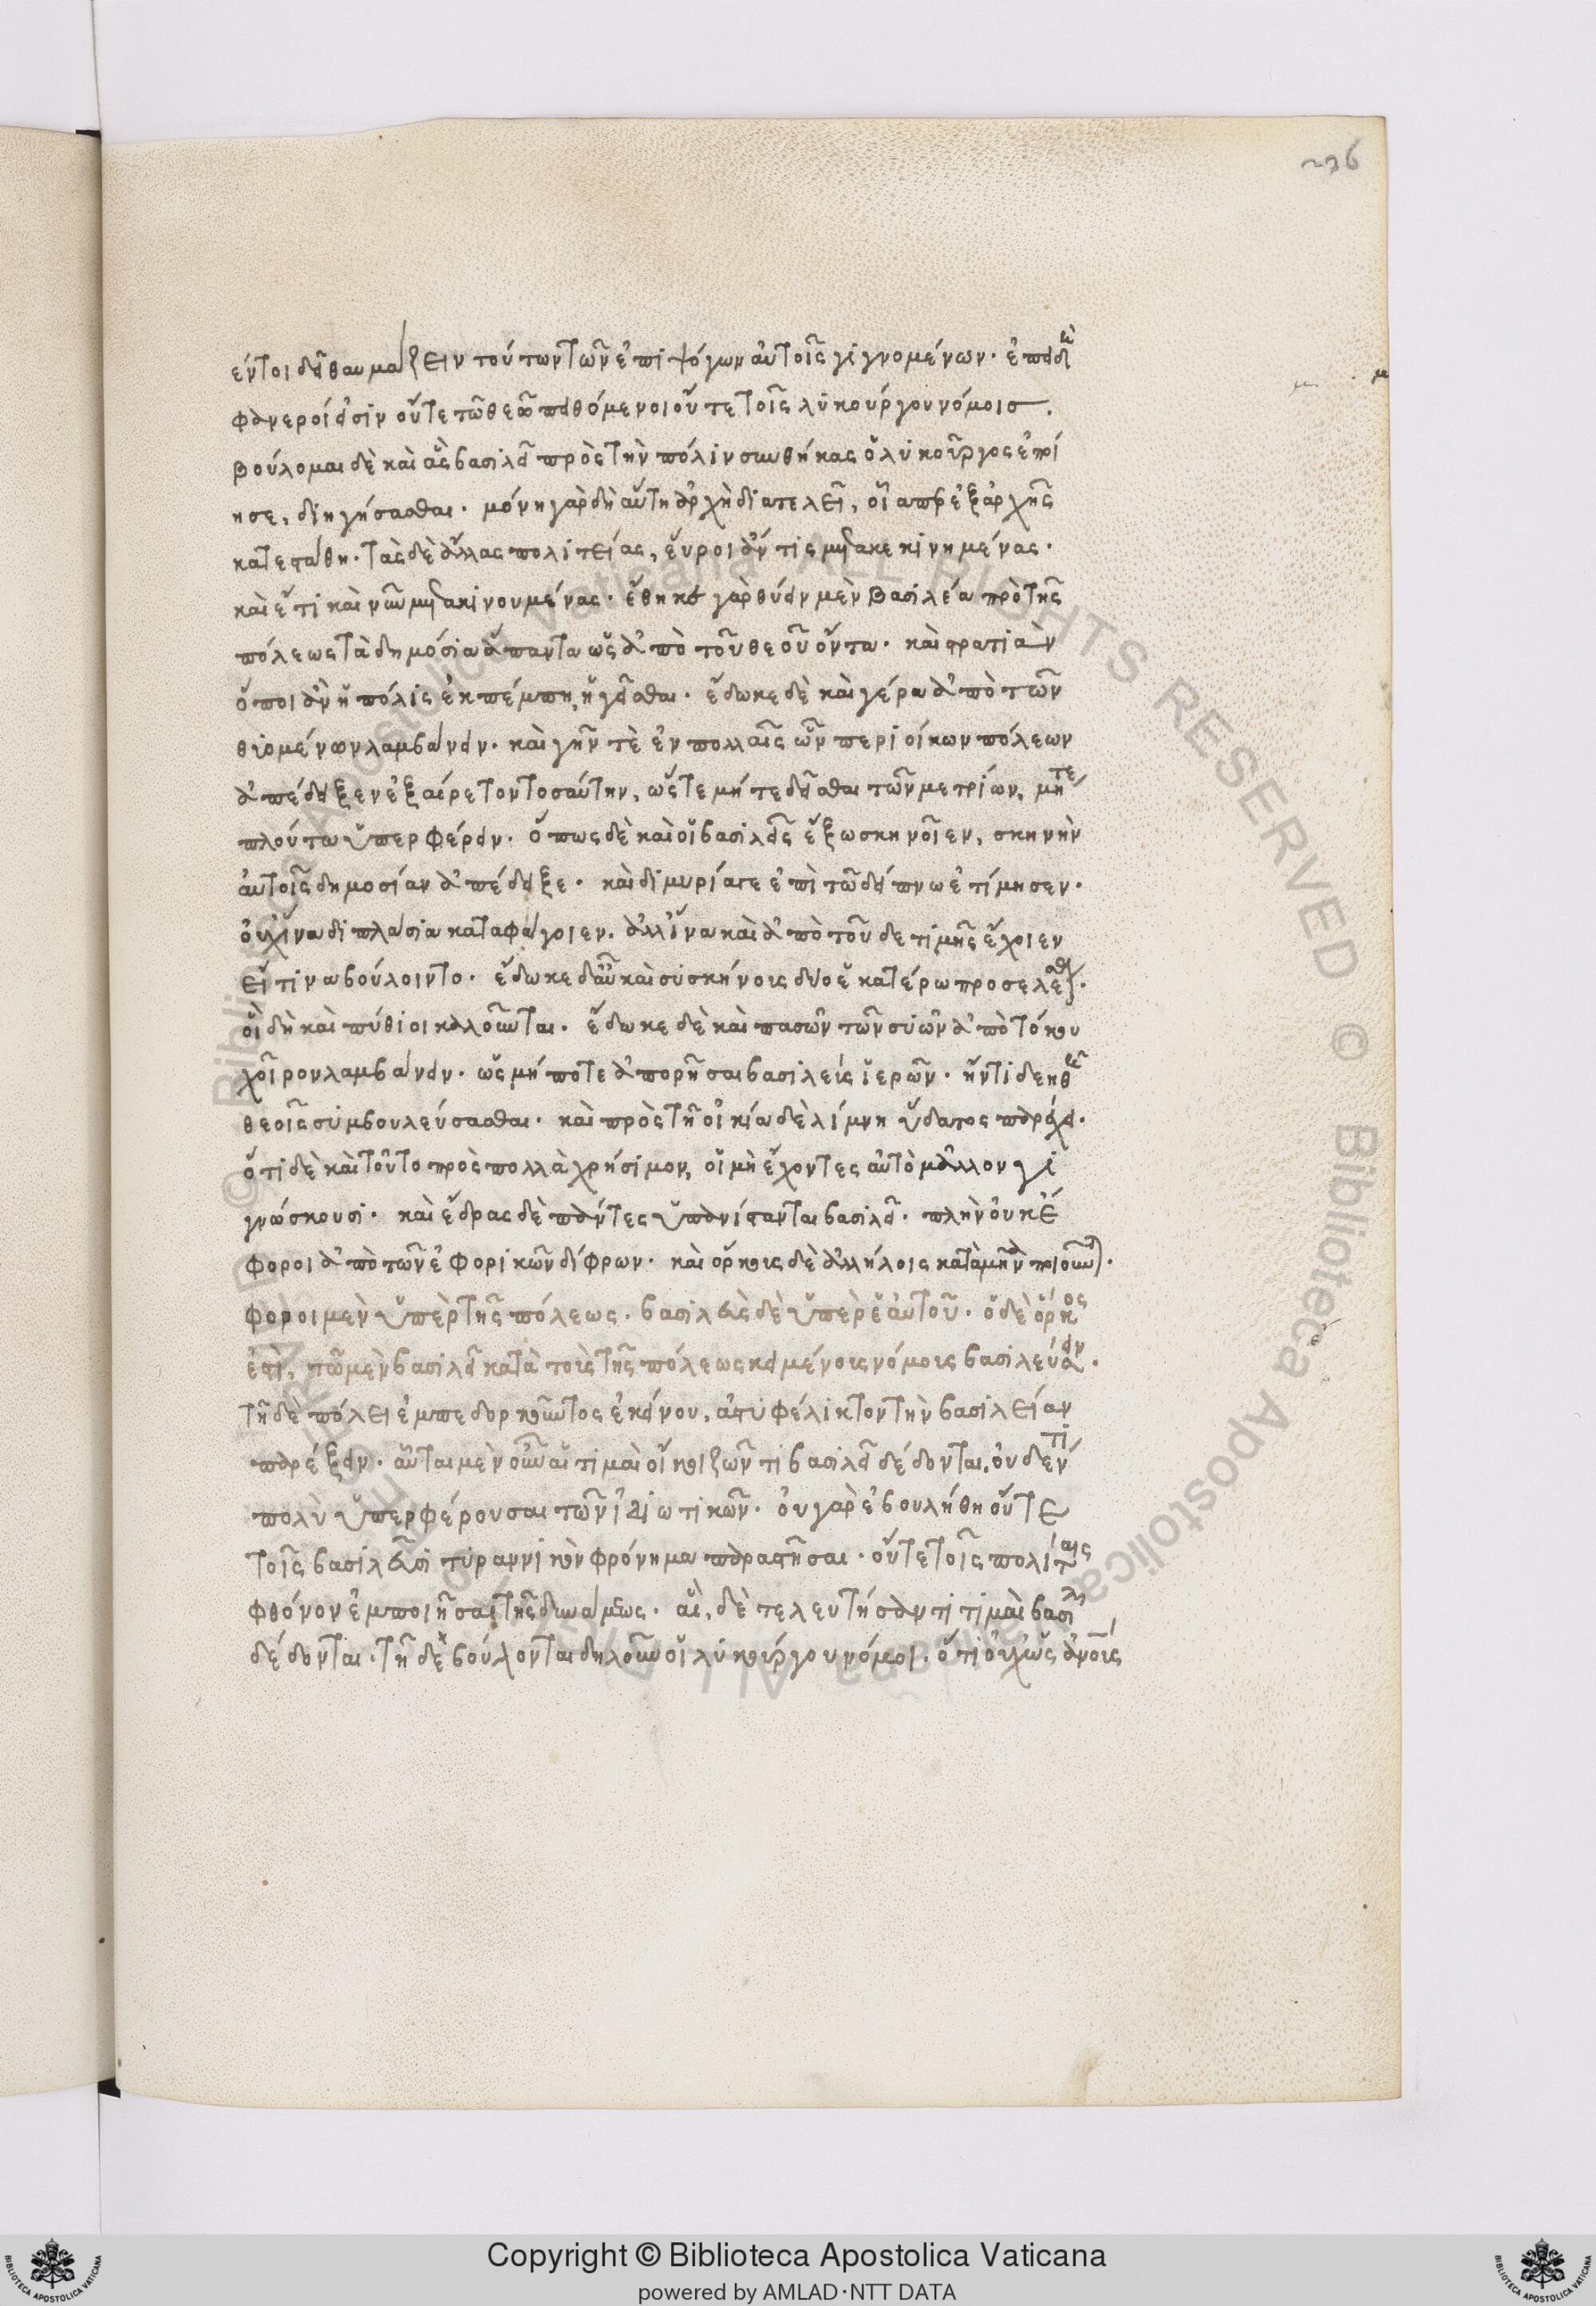 236
έντοι δεῖ θαυμάζειν τούτων τῶν ἐπιψόγων αὐτοῖς γιγνομένων· ἐπειδὴ
φανεροί εἰσιν οὔτε τῶ θεῶ πειθόμενοι οὔτε τοῖς λυκούργου νόμοισ.
Βούλομαι δὲ καὶ ἃς βασιλεῖ πρὸς τὴν πόλιν συνθήκας ὁ λυκοῦργος ἐποί
ησε, διηγήσασθαι. μόνη γὰρ δὴ αὕτη ἀρχὴ διατελεῖ, οἵα περ ἐξ ἀρχῆς
κατεστάθη. τὰς δὲ ἄλλας πολιτείας, εὕροι ἄν τις μετακεκινημένας.
καὶ ἔτι καὶ νῦν μετακινουμένας. ἔθηκε γὰρ θύειν μὲν βασιλέα πρὸ τῆς
πόλεως τὰ δημόσια ἅπαντα ὡς ἀπὸ τοῦ θεοῦ ὄντα. καὶ στρατιὰν
ὅποι ἂν ἡ πόλις ἐκπέμπη, ἡγεῖσθαι. ἔδωκε δὲ καὶ γέρα ἀπὸ τῶν
θυομένων λαμβάνειν. καὶ γῆν τὲ ἐν πολλαῖς τῶν περιοίκων πόλεων
ἀπέδειξεν ἐξαίρετον τοσαύτην, ὥστε μήτε δεῖσθαι τῶν μετρίων, μήτε
πλούτω ὑπερφέρειν. ὅπως δὲ καὶ οἱ βασιλεῖς ἔξω σκηνοῖεν, σκηνὴν
αὐτοῖς δημοσίαν ἀπέδειξε. καὶ διμοιρία γε ἐπὶ τῶ δείπνω ἐτίμησεν.
οὐχ ἵνα διπλάσια καταφάγοιεν. ἀλλ' ἵνα καὶ ἀπὸ τοῦδε τιμῆς ἔχοιεν
εἴ τινα βούλοιντο. ἔδωκε δ' αὖ καὶ συσκήνους δύο ἑκατέρω προσελέσθαι.
οἳ δὴ καὶ πύθιοι καλοῦνται. ἔδωκε δὲ καὶ πασῶν τῶν συῶν ἀπὸ τόκου
χοῖρον λαμβάνειν. ὡς μήποτε ἀπορῆσαι βασιλεῖς ἱερῶν. ἤν τι δεηθῆ
θεοῖς συμβουλεύσασθαι. καὶ πρὸς τῆ οἰκία δὲ λίμνη ὕδατος παρέχει.
ὅτι δὲ καὶ τοῦτο πρὸς πολλὰ χρήσιμον, οἱ μὴ ἔχοντες αὐτὸ μᾶλλον γι
γνώσκουσι. καὶ ἕδρας δὲ πάντες ὑπανίστανται βασιλεῖ. πλὴν οὐκ ἔ
φοροι ἀπὸ τῶν ἐφορικῶν δίφρων. καὶ ὅρκους δὲ ἀλλήλοις κατὰ μῆνα ποιοῦνται.
φοροι μὲν ὑπὲρ τῆς πόλεως. βασιλεὺς δὲ ὑπὲρ ἑαυτοῦ. ὁ δὲ ὅρκος
ἐστὶ, τῶ μὲν βασιλεῖ κατὰ τοὺς τῆς πόλεως κειμένους νόμους βασιλεύειν.
τῆ δὲ πόλει ἐμπεδορκοῦντος ἐκείνου, ἀστυφέλικτον τὴν βασιλείαν
παρέξειν. αὗται μὲν οὖν αἱ τιμαὶ οἴκοι ζῶντι βασιλεῖ δέδονται. οὐδέν τι
πολὺ ὑπερφέρουσαι τῶν ἰδιωτικῶν. οὐ γὰρ ἐβουλήθη οὔτε
τοῖς βασιλεῦσι τυραννικὸν φρόνημα παραστῆσαι. οὔτε τοῖς πολίταις
φθόνον ἐμποιῆσαι τῆς δυνάμεως. αἳ, δὲ τελευτήσαντι τιμαὶ βασιλεῖ
δέδονται. τῆδε βούλονται δηλοῦν οἱ λυκούργου νόμοι. ὅτι οὐχ ὡς ἀνοῖς